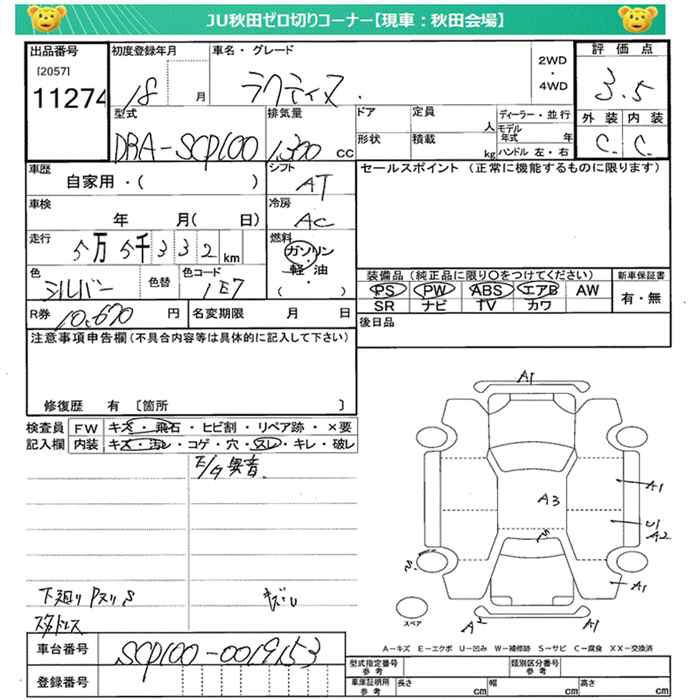 JU秋田ゼロ切りコーナー【現車：秋田会場】
出品番号 初度登録年月 車名・グレード 2WD・4WD 評価点
[2057]
11274 18 月 ラクティス 3.5
型式 排気量 ドア 定員 人 ディーラー・並行 外装 内装
DBA-SCP100 1,300 CC 形状 積載 kg モデル年式 年 ハンドル 左・右 C. C.
車歴 シフト セールスポイント（正常に機能するものに限ります）
自家用・( ) AT
車検 冷房
年 月( 日) AC
走行 燃料
5万5千332km ガソリン・軽油
色 色替 色コード ( )
シルバー 1E7
装備品（純正品に限り○をつけてください） 新車保証書
PS PW ABS エアB AW 有・無
SR ナビ TV カワ
R券 10,670 円 名変期限 月 日
後日品
注意事項申告欄(不具合内容等は具体的に記入して下さい)
修復歴 有 〔箇所 〕
検査員 FW キズ・飛石・ヒビ割・リペア跡・×要
記入欄 内装 キズ・汚レ・コゲ・穴・スレ・キレ・破レ
E/G異音
A1
A3
A1
U1
A2
A1
A2
A1
下廻りPスリS
スタッドレス
スペア
A－キズ E－エクボ U－凹み W－補修跡 S－サビ C－腐食 XX－交換済
車台番号 SCP100-0019153
登録番号
型式指定番号 参考 類別区分番号 参考
車庫証明用 参考 長さ cm 幅 cm 高さ cm